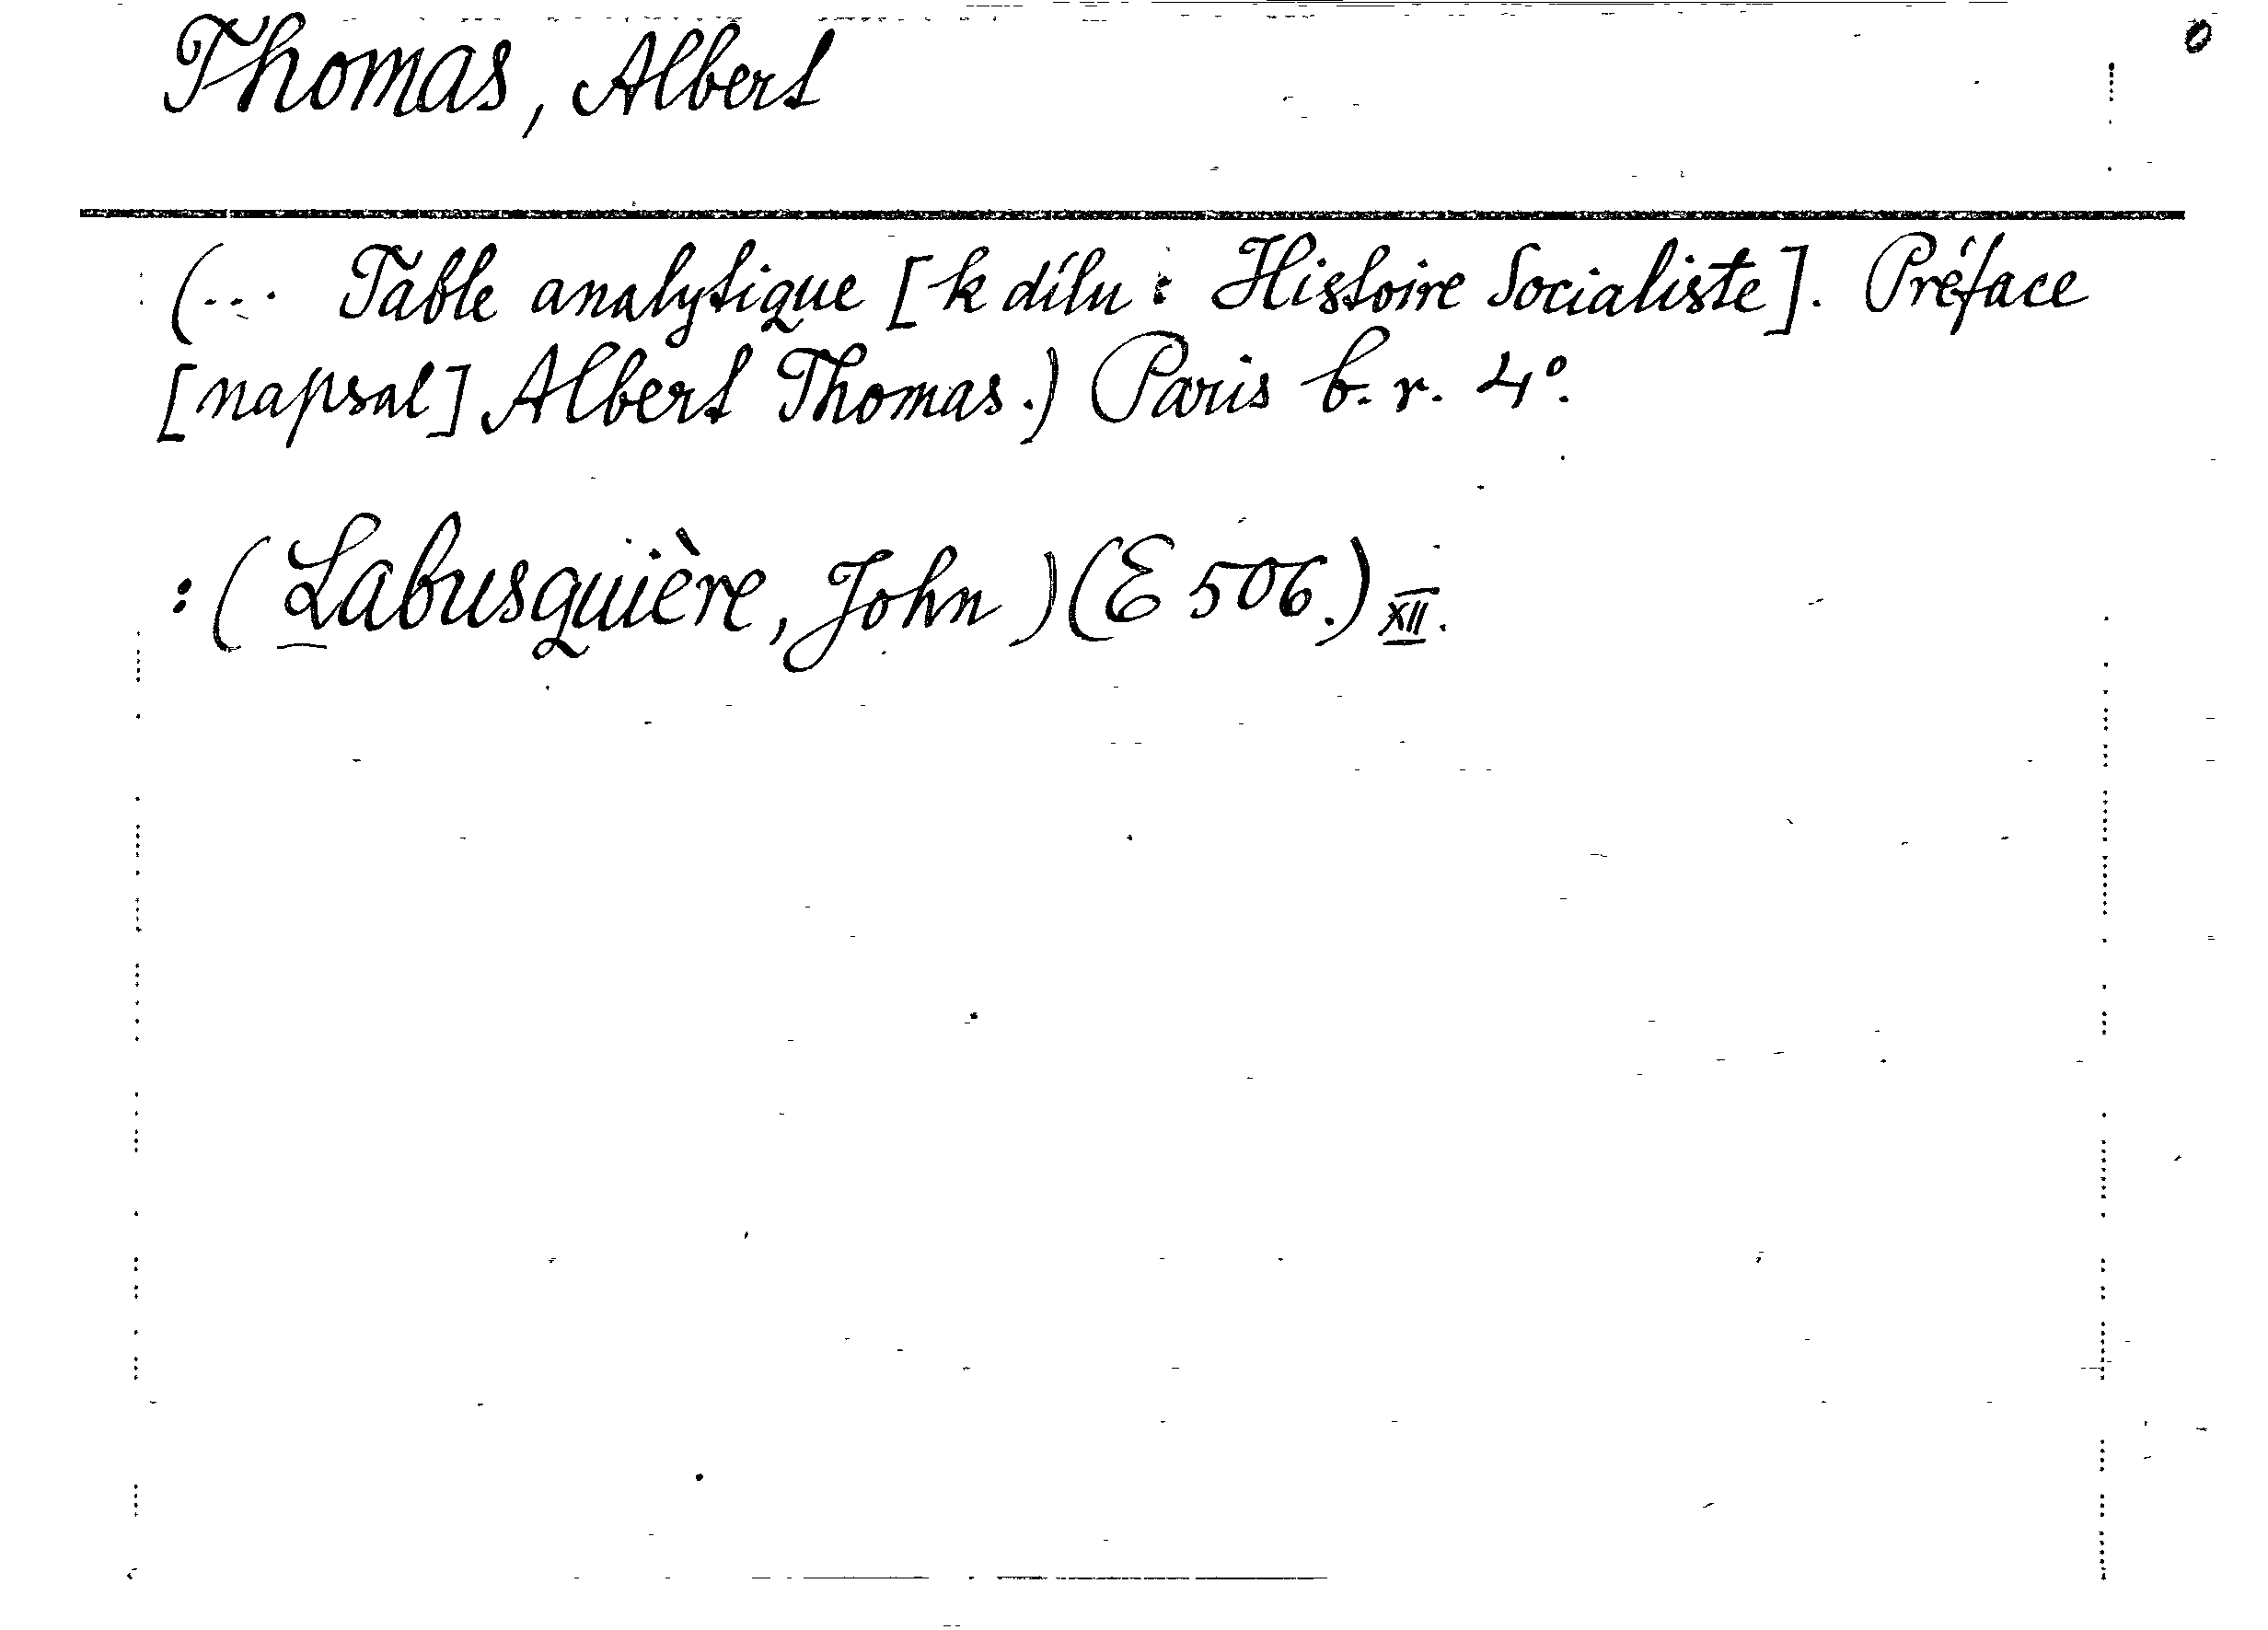 Thomas, Albert
(... Table analytique [k dílu: Histoire Socialiste]. Préface
[napsal] Albert Thomas.) Paris b. r. 4°.
: (Labusquière, John) (E 506.) XII.